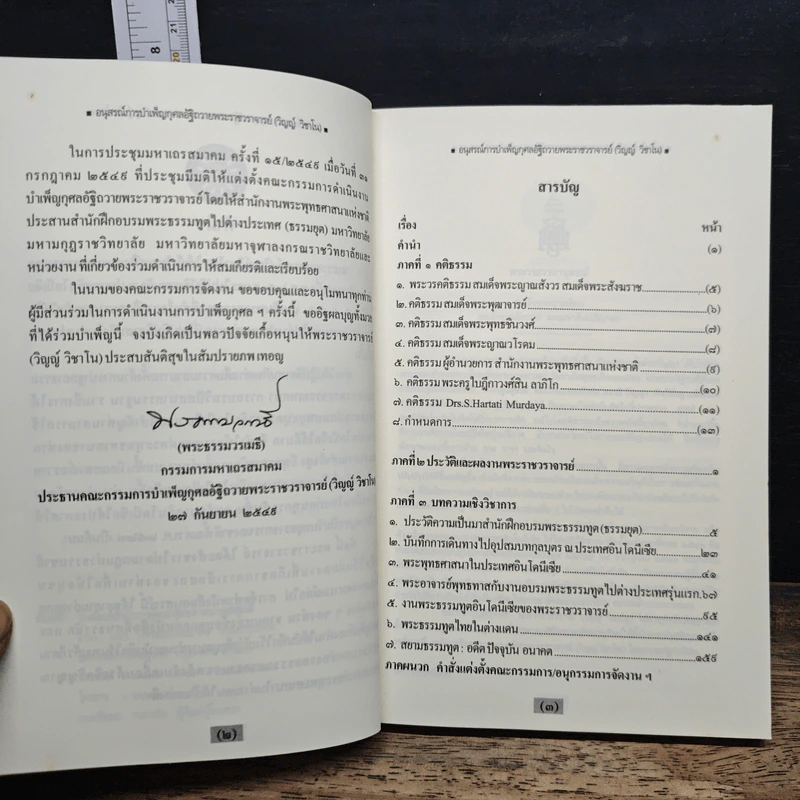 8
21
20
■ อนุสรณ์การบำเพ็ญกุศลอัฐิถวายพระราชวราจารย์ (วิญญ์ วิชาโน) ■
ในการประชุมมหาเถรสมาคม ครั้งที่ ๑๕/๒๕๔๙ เมื่อวันที่ ๓๑
กรกฎาคม ๒๕๔๙ ที่ประชุมมีมติให้แต่งตั้งคณะกรรมการดำเนินงาน
บำเพ็ญกุศลอัฐิถวายพระราชวราจารย์ โดยให้สำนักงานพระพุทธศาสนาแห่งชาติ
ประสานสำนักฝึกอบรมพระธรรมทูตไปต่างประเทศ (ธรรมยุต) มหาวิทยาลัย
มหามกุฏราชวิทยาลัย มหาวิทยาลัยมหาจุฬาลงกรณราชวิทยาลัยและ
หน่วยงาน ที่เกี่ยวข้องร่วมดำเนินการให้สมเกียรติและเรียบร้อย
ในนามของคณะกรรมการจัดงาน ขอขอบคุณและอนุโมทนาทุกท่าน
ผู้มีส่วนร่วมในการดำเนินงานการบำเพ็ญกุศล ฯ ครั้งนี้ ขออิฐผลบุญทั้งมวล
ที่ได้ร่วมบำเพ็ญนี้ จงบังเกิดเป็นพลวปัจจัยเกื้อหนุนให้พระราชวราจารย์
(วิญญ์ วิชาโน) ประสบสันติสุขในสัมปรายภพ เทอญ
(พระธรรมวรเมธี)
กรรมการมหาเถรสมาคม
ประธานคณะกรรมการบำเพ็ญกุศลอัฐิถวายพระราชวราจารย์ (วิญญ์ วิชาโน)
๒๗ กันยายน ๒๕๔๙
(๒)
■ อนุสรณ์การบำเพ็ญกุศลอัฐิถวายพระราชวราจารย์ (วิญญ์ วิชาโน) ■
สารบัญ
เรื่อง หน้า
คำนำ (๑)
ภาคที่ ๑ คติธรรม
๑. พระวรคติธรรม สมเด็จพระญาณสังวร สมเด็จพระสังฆราช.....(๕)
๒. คติธรรม สมเด็จพระพุฒาจารย์.....(๖)
๓. คติธรรม สมเด็จพระพุทธชินวงศ์.....(๗)
๔. คติธรรม สมเด็จพระญาณวโรดม.....(๘)
๕. คติธรรม ผู้อำนวยการ สำนักงานพระพุทธศาสนาแห่งชาติ.....(๙)
๖. คติธรรม พระครูใบฎีกาวงศ์สิน ลาภิโก.....(๑๐)
๗. คติธรรม Drs.S.Hartati Murdaya.....(๑๑)
๘. กำหนดการ.....(๑๓)
ภาคที่ ๒ ประวัติและผลงานพระราชวราจารย์.....๑
ภาคที่ ๓ บทความเชิงวิชาการ
๑. ประวัติความเป็นมาสำนักฝึกอบรมพระธรรมทูต (ธรรมยุต).....๕
๒. บันทึกการเดินทางไปอุปสมบทกุลบุตร ณ ประเทศอินโดนีเซีย.....๒๓
๓. พระพุทธศาสนาในประเทศอินโดนีเซีย.....๔๑
๔. พระอาจารย์พุทธทาสกับงานอบรมพระธรรมทูตไปต่างประเทศรุ่นแรก.๖๗
๕. งานพระธรรมทูตอินโดนีเซียของพระราชวราจารย์.....๙๕
๖. พระธรรมทูตไทยในต่างแดน.....๑๔๑
๗. สยามธรรมทูต : อดีต ปัจจุบัน อนาคต.....๑๕๙
ภาคผนวก คำสั่งแต่งตั้งคณะกรรมการ/อนุกรรมการจัดงาน ฯ
(๓)